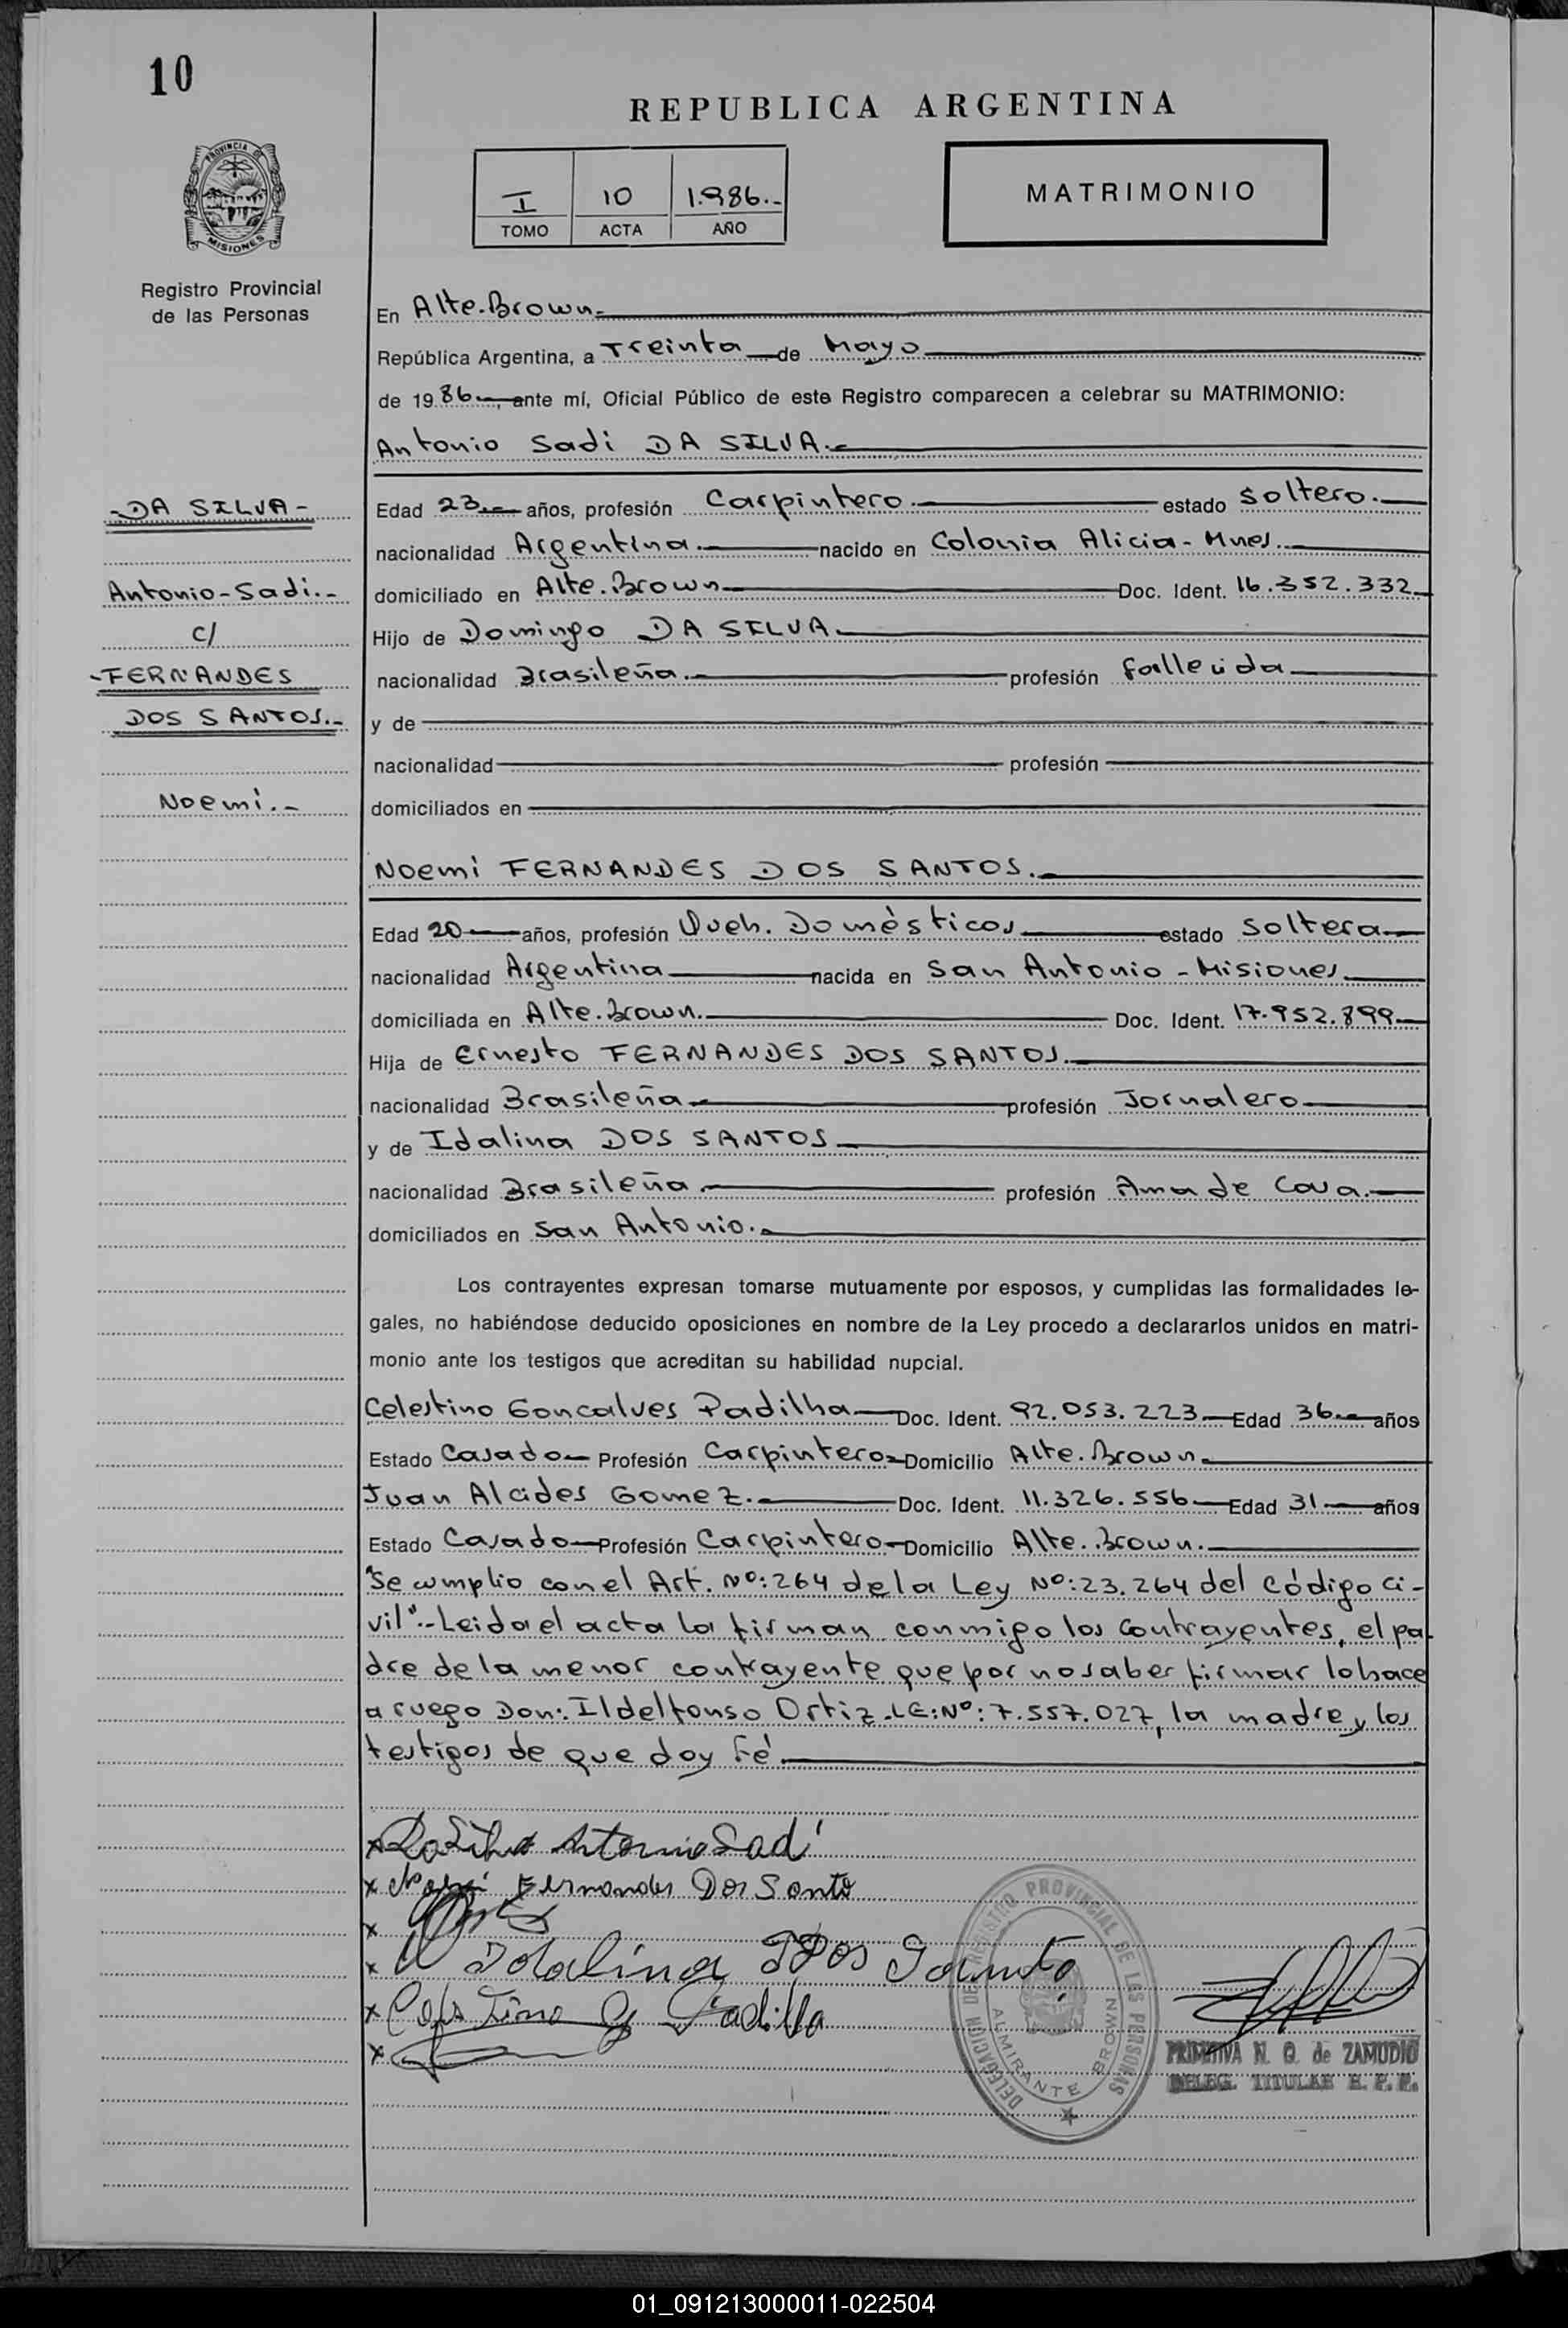 10
REPUBLICA ARGENTINA
PROVINCIA DE
MISIONES
I 10 1.986.-
TOMO ACTA AÑO
MATRIMONIO
Registro Provincial
de las Personas
En Alte.Brown.
República Argentina, a Treinta de Mayo
de 1986.-, ante mí, Oficial Público de este Registro comparecen a celebrar su MATRIMONIO:
Antonio Sadi DA SILVA.-
-DA SILVA-
Antonio-Sadi.-
c/
-FERNANDES
DOS SANTOS.-
Noemi.-
Edad 23.- años, profesión Carpintero.- estado Soltero.-
nacionalidad Argentina.- nacido en Colonia Alicia-Mnes.
domiciliado en Alte.Brown Doc. Ident. 16.352.332
Hijo de Domingo DA SILVA.
nacionalidad Brasileña.- profesión fallecida
y de
nacionalidad profesión
domiciliados en
Noemi FERNANDES DOS SANTOS.-
Edad 20 años, profesión Queh. Domésticos estado Soltera
nacionalidad Argentina nacida en San Antonio - Misiones
domiciliada en Alte.Brown. Doc. Ident. 17.952.899
Hija de Ernesto FERNANDES DOS SANTOS.
nacionalidad Brasileña profesión Jornalero
y de Idalina DOS SANTOS
nacionalidad Brasileña. profesión Ama de Casa.
domiciliados en San Antonio.
Los contrayentes expresan tomarse mutuamente por esposos, y cumplidas las formalidades le-
gales, no habiéndose deducido oposiciones en nombre de la Ley procedo a declararlos unidos en matri-
monio ante los testigos que acreditan su habilidad nupcial.
Celestino Goncalves Padilha Doc. Ident. 92.053.223 Edad 36.- años
Estado Casado Profesión Carpintero Domicilio Alte.Brown.
Juan Alcides Gomez. Doc. Ident. 11.326.556 Edad 31 años
Estado Casado Profesión Carpintero Domicilio Alte.Brown.
"Se cumplio con el Art. Nº:264 de la Ley Nº:23.264 del Código ci-
vil".-Leida el acta la firman conmigo los contrayentes, el pa-
dre de la menor contrayente que por no saber firmar lo hace
a ruego Don: Ildelfonso Ortiz-LE:Nº:7.557.027, la madre y los
testigos de que doy Fé
x Da Silva Antonio Sadi
x Noemi Fernandes Dos Santo
x
x Idalina Dos Santo
x Celestino G Padilla
x
DELEGACION DEL REGISTRO PROVINCIAL DE LAS PERSONAS
ALMIRANTE BROWN
PRIMITIVA N. Q. de ZAMUDIO
DELEG. TITULAR R. P. P.
01_091213000011-022504